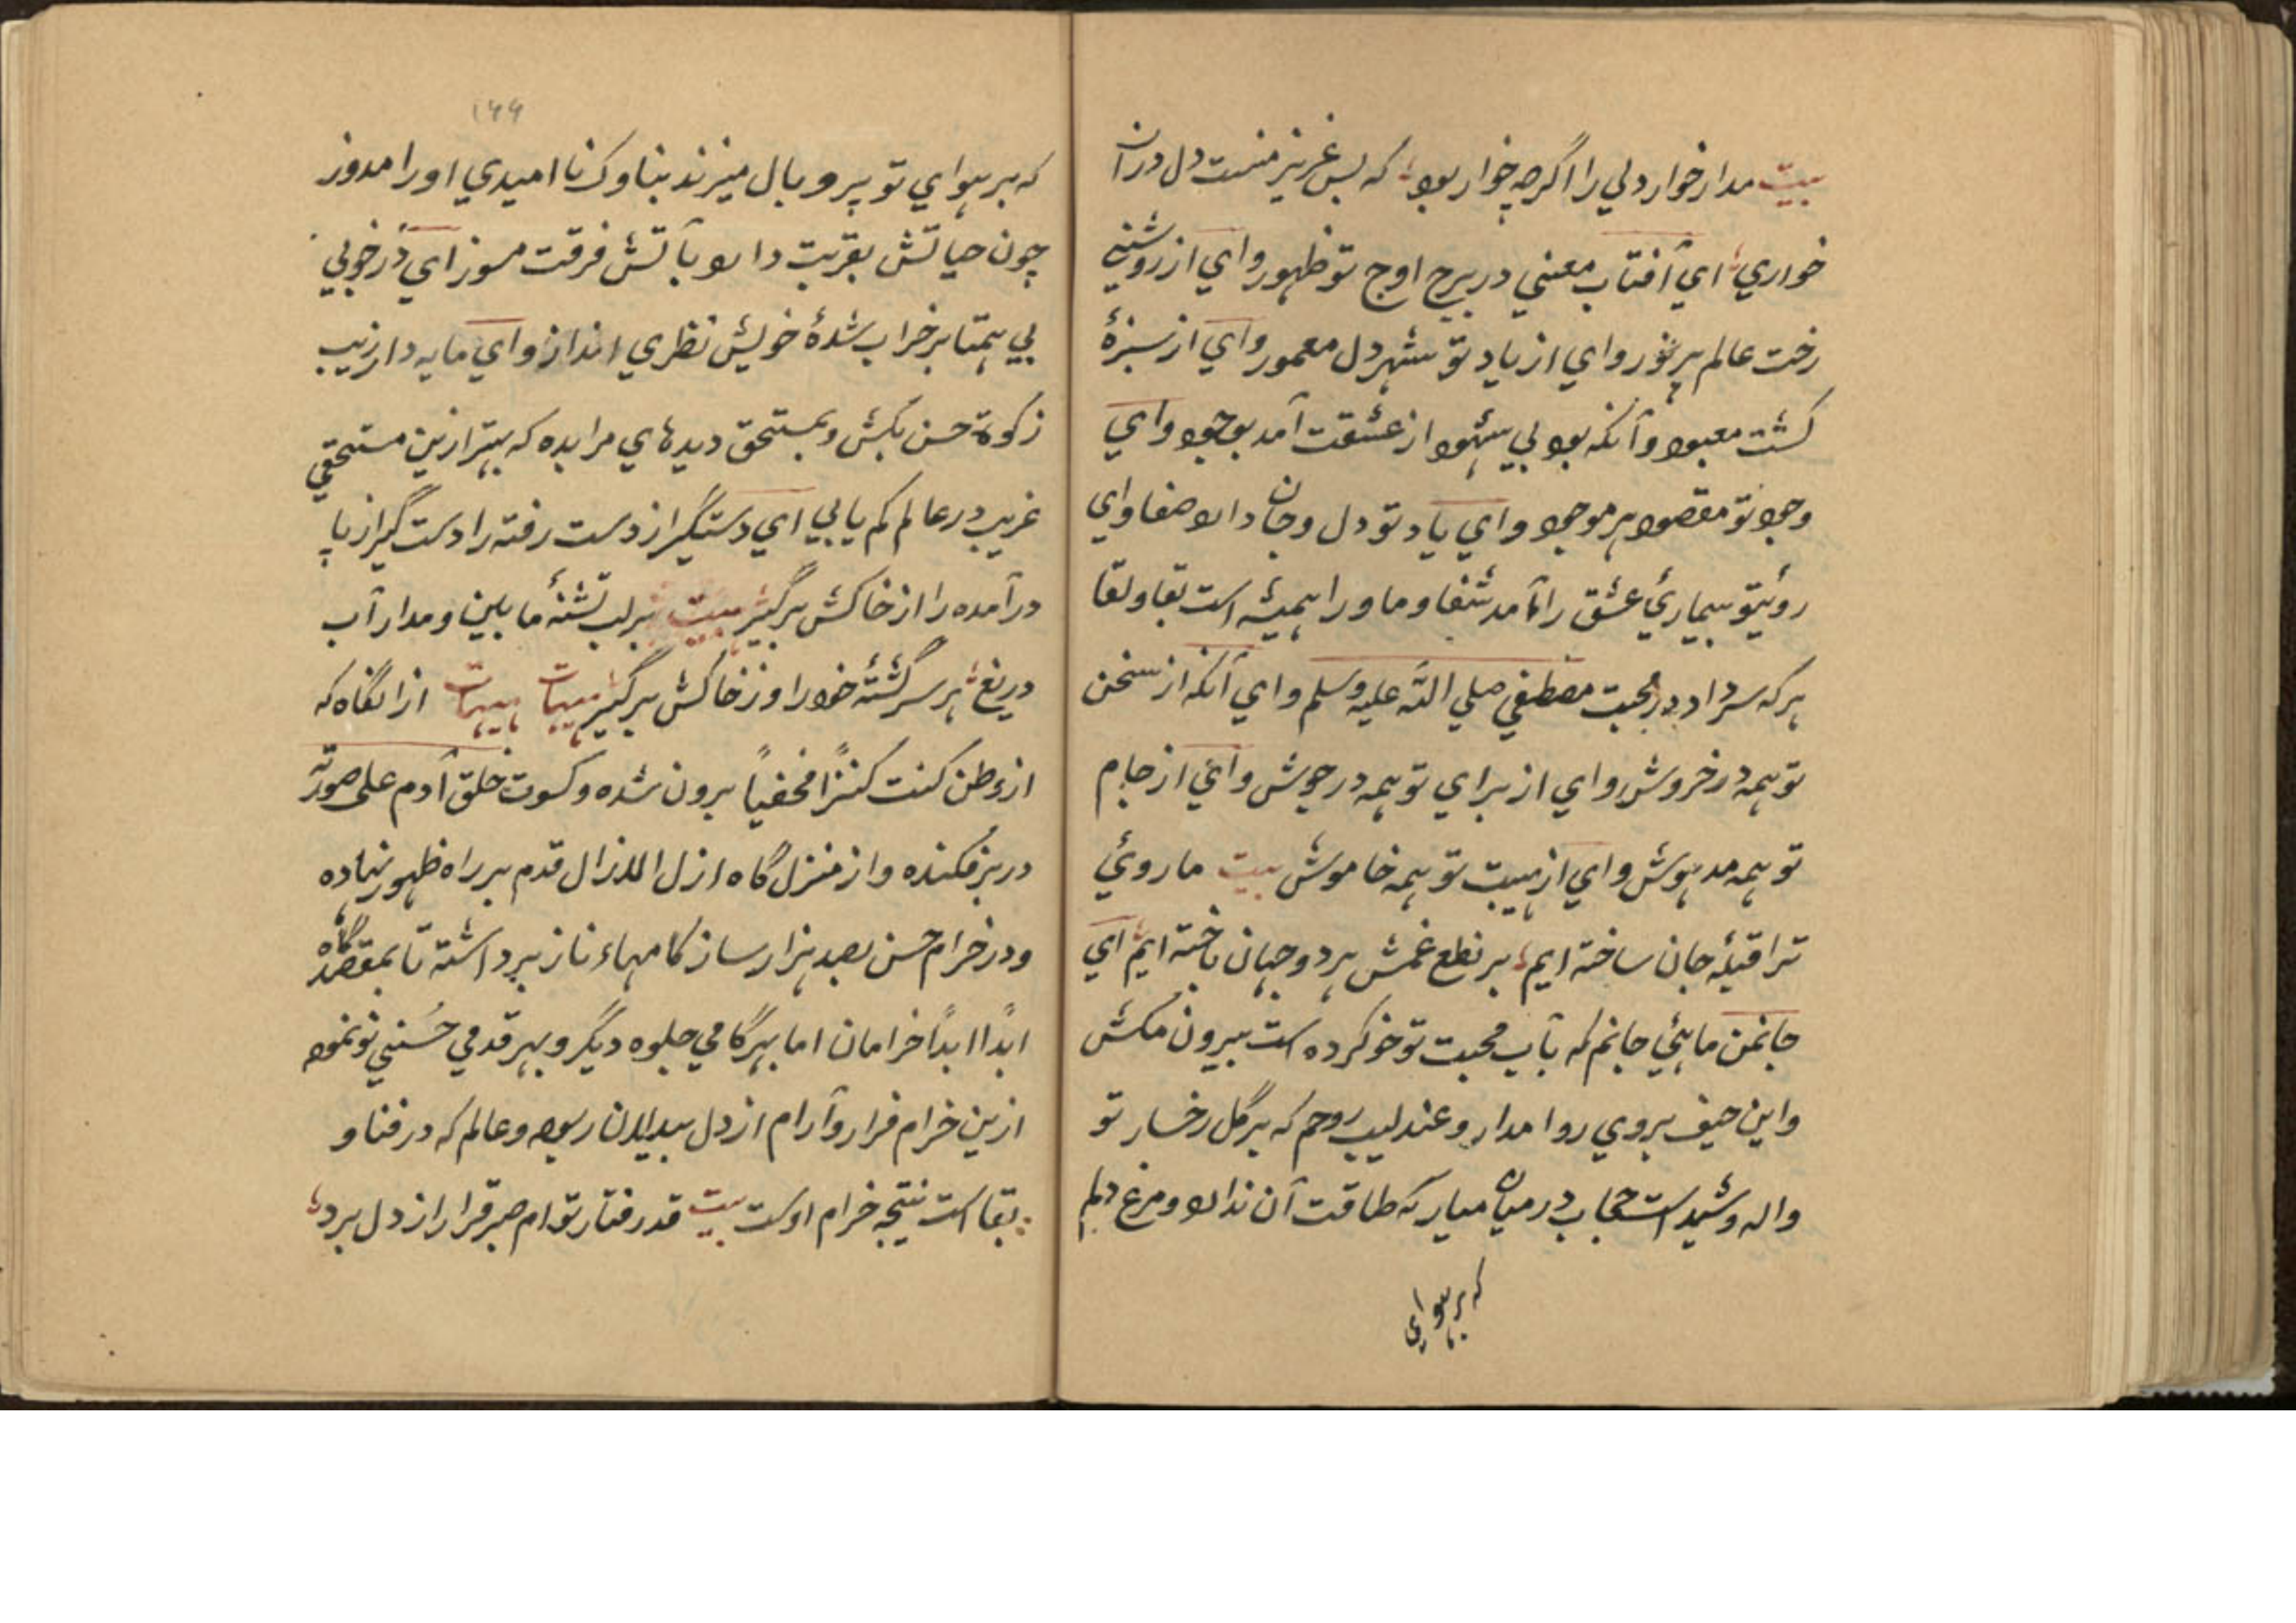 بیت مدار خوار دلی را اگرچه خوار بود که بس عزیز منست دل در آن
خواری ای آفتاب معنی در برج اوج تو ظهور وای از روشنی
رخت عالم پر نور وای از یاد تو شهر دل معمور وای از سبزهٔ
کشت معبود و آنکه بود بی شهود از عشقت آمد بوجود وای
وجود تو مقصود هر موجود وای یاد تو دل و جان دارد صفا وای
رویتو بیماریٔ عشق را آمد شفا و ما ورا همیشه است بقا و لقا
هر که سر داد در محبت مصطفی صلی الله علیه وسلم وای آنکه از سخن
تو همه در خروش وای از برای تو همه در جوش وای از جام
تو همه مدهوش وای از هیبت تو همه خاموش بیت ما روئی
ترا قبلهٔ جان ساخته ایم بر نطع غمش هر دو جهان باخته ایم ای
جانمن ماهئی جانم که بآب محبت تو خو کرده است بیرون مکش
و این حیف بروی روا مدار و عندلیب روحم که بر گل رخسار تو
واله و شیداست حجاب در میان میار که طاقت آن ندارد و مرغ دلم
که بر هوای
۱۶۶
که بر هوای تو پر و بال میزند بناوک نا امیدی او را مدوز
چون حیاتش بقربت دارد بآتش فرقت مسوز ای در خوبی
بی همتا بر خراب شدهٔ خویش نظری انداز و ای مایه دار زیب
زکوة حسن بکش و بمستحق دیدهای مرا بده که بهتر ازین مستحقی
غریب در عالم کم یابی ای دستگیر از دست رفته را دست گیر از پا
در آمده را از خاکش برگیر بیت بر لب تشنهٔ ما بین و مدار آب
دریغ بر سر گشتهٔ خود را و ز خاکش برگیر هیهات هیهات از انگاه که
از وطن کنت کنزاً مخفیاً برون شده و کسوت خلق آدم علی صورته
در بر فکنده و از منزل گاه ازل الازال قدم بر راه ظهور نهاده
و در خرام حسن بصد هزار ساز کامهاء ناز برداشته تا بمقصد گاه
ابداً ابداً خرامان اما بهر گامی جلوه دیگر و بهر قدمی حُسنی نو نمود
ازین خرام قرار و آرام از دل بیدلان ربود و عالم که در فنا و
بقاست نتیجه خرام اوست بیت قد رفتار توام صبر قرار از دل برد